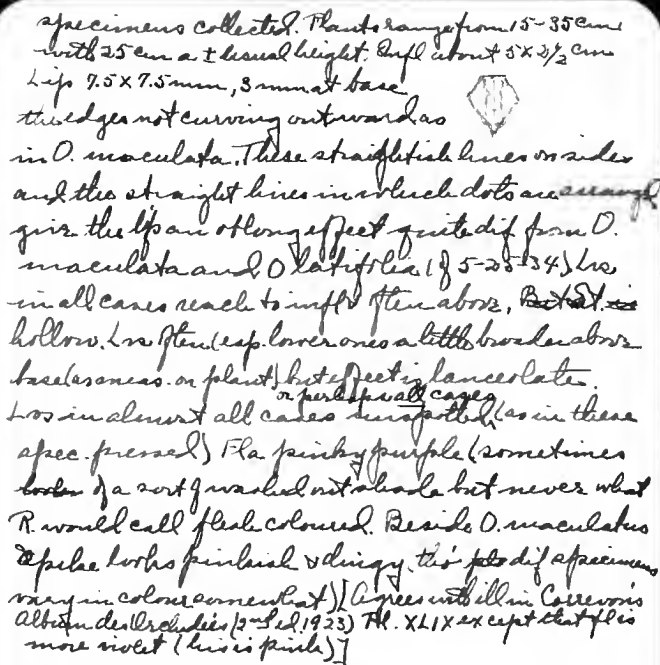 specimens collected. Plants range from 15-35 cm
with 25 cm a ± usual height. Infl about 5 x 2½ cm
Lip 7.5 x 7.5 mm, 3 mm at base
the edges not curving outward as
in O. maculata. These straightish lines on sides
and the straight lines in which dots are arranged
give the lip an oblong effect quite dif from O.
maculata and O latifolia (of 5-25-34) Lvs
in all cases reach to infl & often above, But St. is
hollow. Lvs often (esp. lower ones a little broader above
base (as meas. on plant) but effect is lanceolate.
or perhaps all cases
Lvs in almost all cases unspotted (as in these
spec. pressed) Fls pinky purple (sometimes
of a sort of washed out shade but never what
R. would call flesh coloured. Beside O. maculatus
spike looks pinkish & dingy, tho' dif specimens
vary in colour somewhat) [Agrees with ill in Correvon's
Album des Orchidées (2nd ed. 1923) Pl. XLIX except that fl is
more violet (his is pink)]